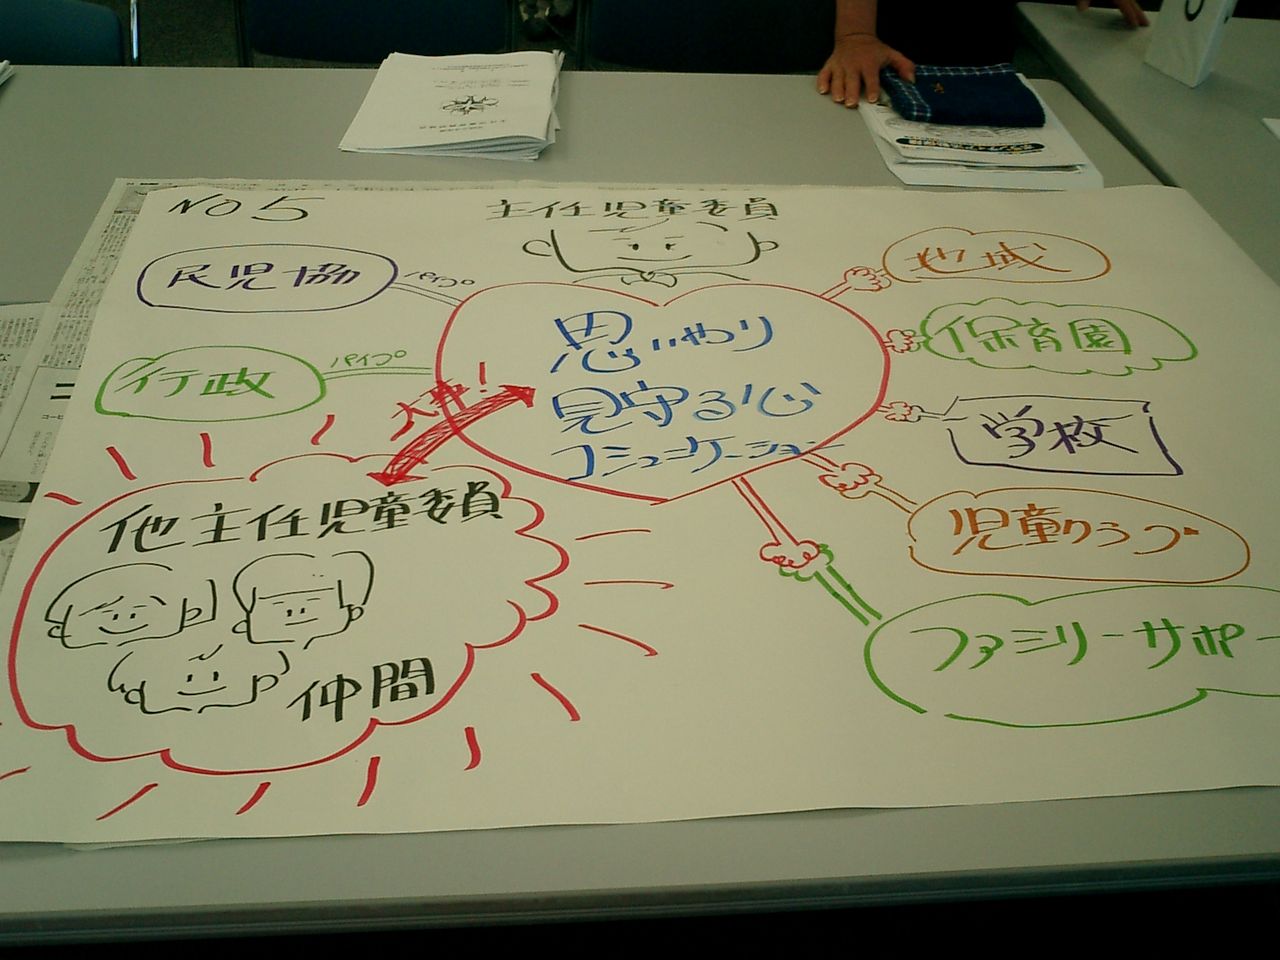 NO 5
主任児童委員
民児協
パイプ
地域
思いやり
見守る心
コミュニケーション
保育園
行政
パイプ
大事!
学校
他主任児童委員
児童クラブ
仲間
ファミリーサポー